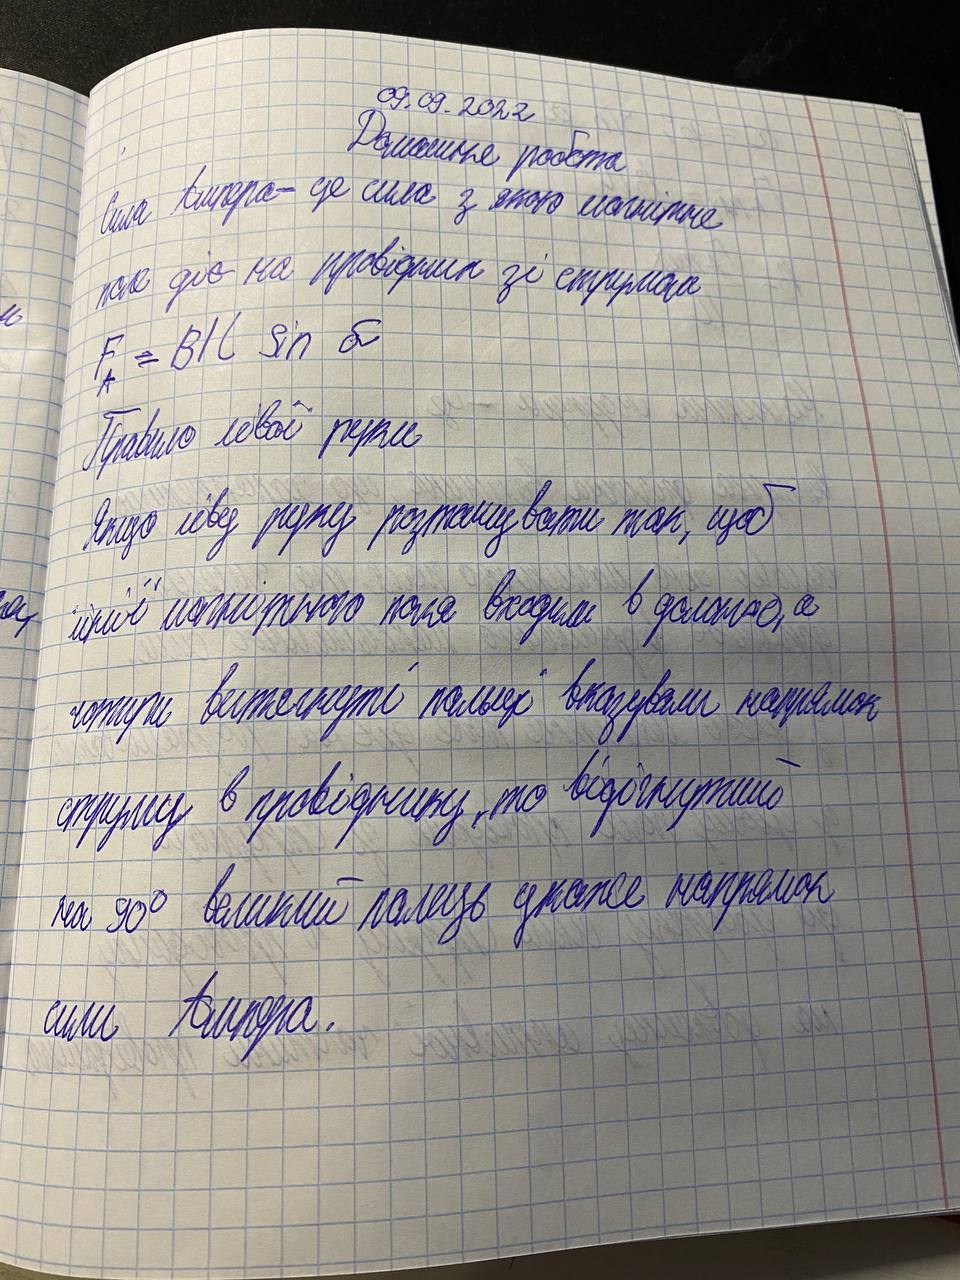 09.09.2022
Домашнє робота
Сила Ампера - це сила з якою магнітне
поле діє на провідник зі струмом
F_A = BIL sin б
Правило лівої руки
Якщо ліву руку розташувати так, щоб
лінії магнітного поля входили в долоню, а
чотири витягнуті пальці вказували напрямок
струму в провіднику, то відігнутий
на 90° великий палець укаже напрямок
сили Ампера.